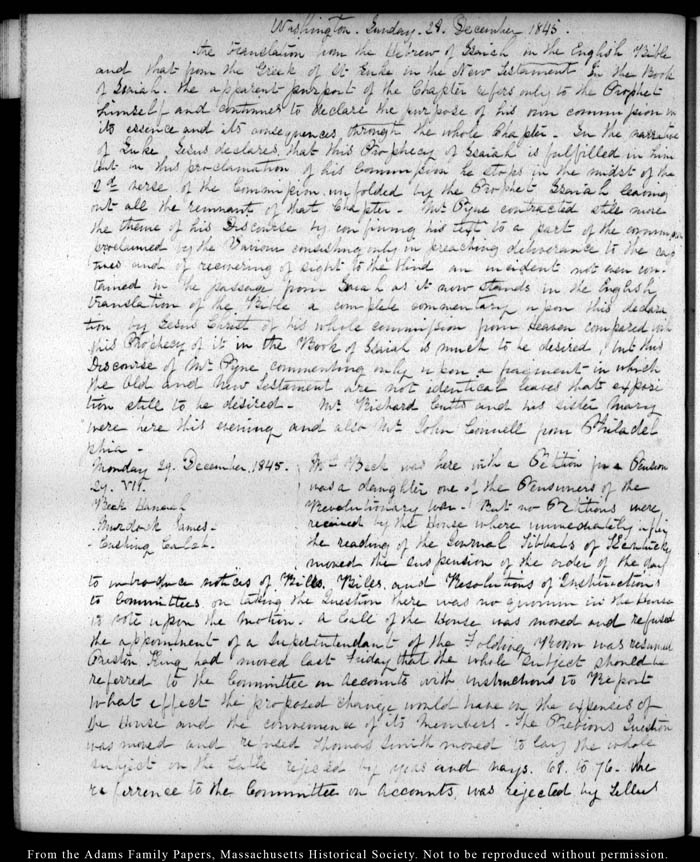 Washington. Sunday. 28. December 1845.
the translation from the Hebrew of Isaiah in the English Bible
and that from the Greek of St Luke in the New Testament In the Book
of Isaiah. the apparent purport of the Chapter refers only to the Prophet
himself and continues to declare the purpose of his own commission in
its essence and its consequences through the whole Chapter. In the narrative
of Luke, Jesus declares, that this Prophecy of Isaiah is fulfilled in him
but in this proclamation of his Commission he stops in the midst of the
2d verse of the Commission unfolded by the Prophet Isaiah leaving
out all the remnant of that Chapter. Mr Pyne contracted still more
the theme of his Discourse by confining his text to a part of the commission
proclaimed by the Saviour consisting only in preaching deliverance to the cap
tives and of recovering of sight to the blind an incident not even con-
tained in the passage from Isaiah as it now stands in the English
translation of the Bible a complete commentary upon this declara
tion by Jesus Christ of his whole commission from heaven compared with
this Prophecy of it in the Book of Isaiah is much to be desired, but this
Discourse of Mr Pyne commenting only upon a fragment in which
the Old and New Testament are not identical leaves that exposi
tion still to be desired. Mr Richard Cutts and his sister Mary
were here this evening and also Mr John Connell from Philadel
phia.
Monday 29. December. 1845.
29. VII.
Beck Hannah
Murdock James.
Cushing Caleb.
Mrs Beck was here with a Petition for a Pension
was a daughter one of the Pensioners of the
Revolutionary War. But no Petitions were
received by the House where immediately after
the reading of the Journal Tibbats of Kentucky
moved the suspension of the order of the day
to introduce notices of Bills, Bills, and Resolutions of Instructions
to Committees on taking the Question there was no quorum in the House
to vote upon the motion. A Call of the House was moved and refused
the appointment of a Superintendant of the Folding Room was resumed
Preston King had moved last Friday that the whole subject should be
referred to the Committee on Accounts with instructions to Report
what effect the proposed change would have on the expenses of
the House and the convenience of its members. The Previous Question
was moved and refused Thomas Smith moved to lay the whole
subject on the table rejected by yeas and nays. 68. to 76. the
referrence to the Committee on Accounts, was rejected by Tellers
From the Adams Family Papers, Massachusetts Historical Society. Not to be reproduced without permission.